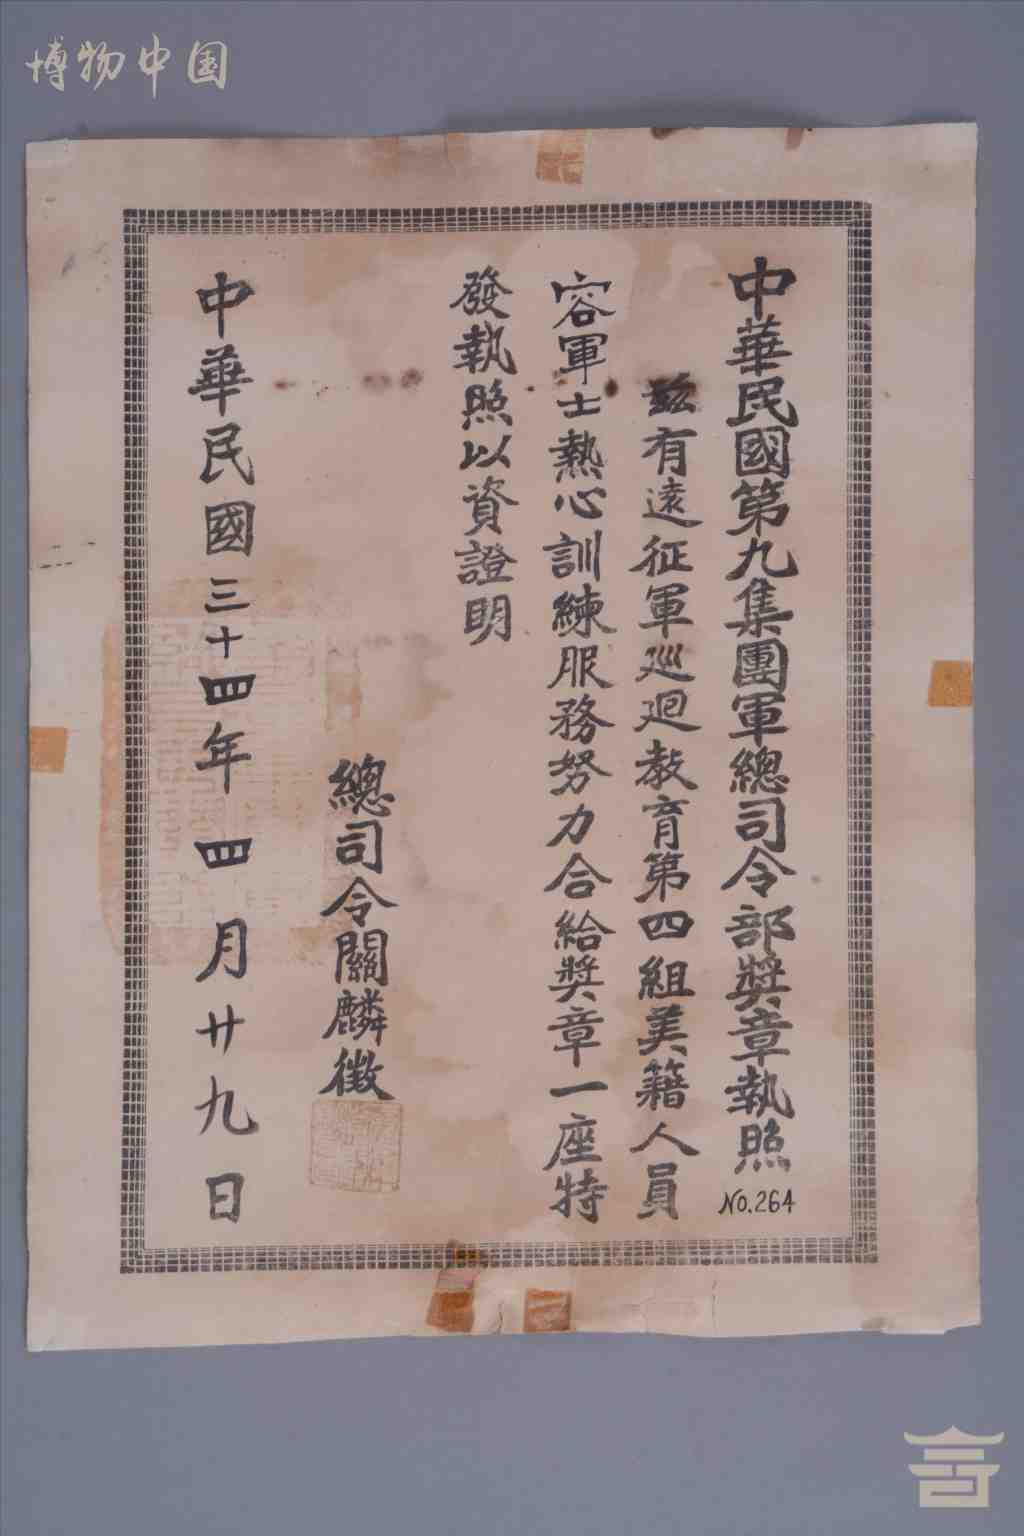 博物中国
中華民國第九集團軍總司令部獎章執照
No.264
茲有遠征軍巡迴教育第四組美籍人員
容軍士熱心訓練服務努力合給獎章一座特
發執照以資證明
總司令關麟徵
中華民國三十四年四月廿九日